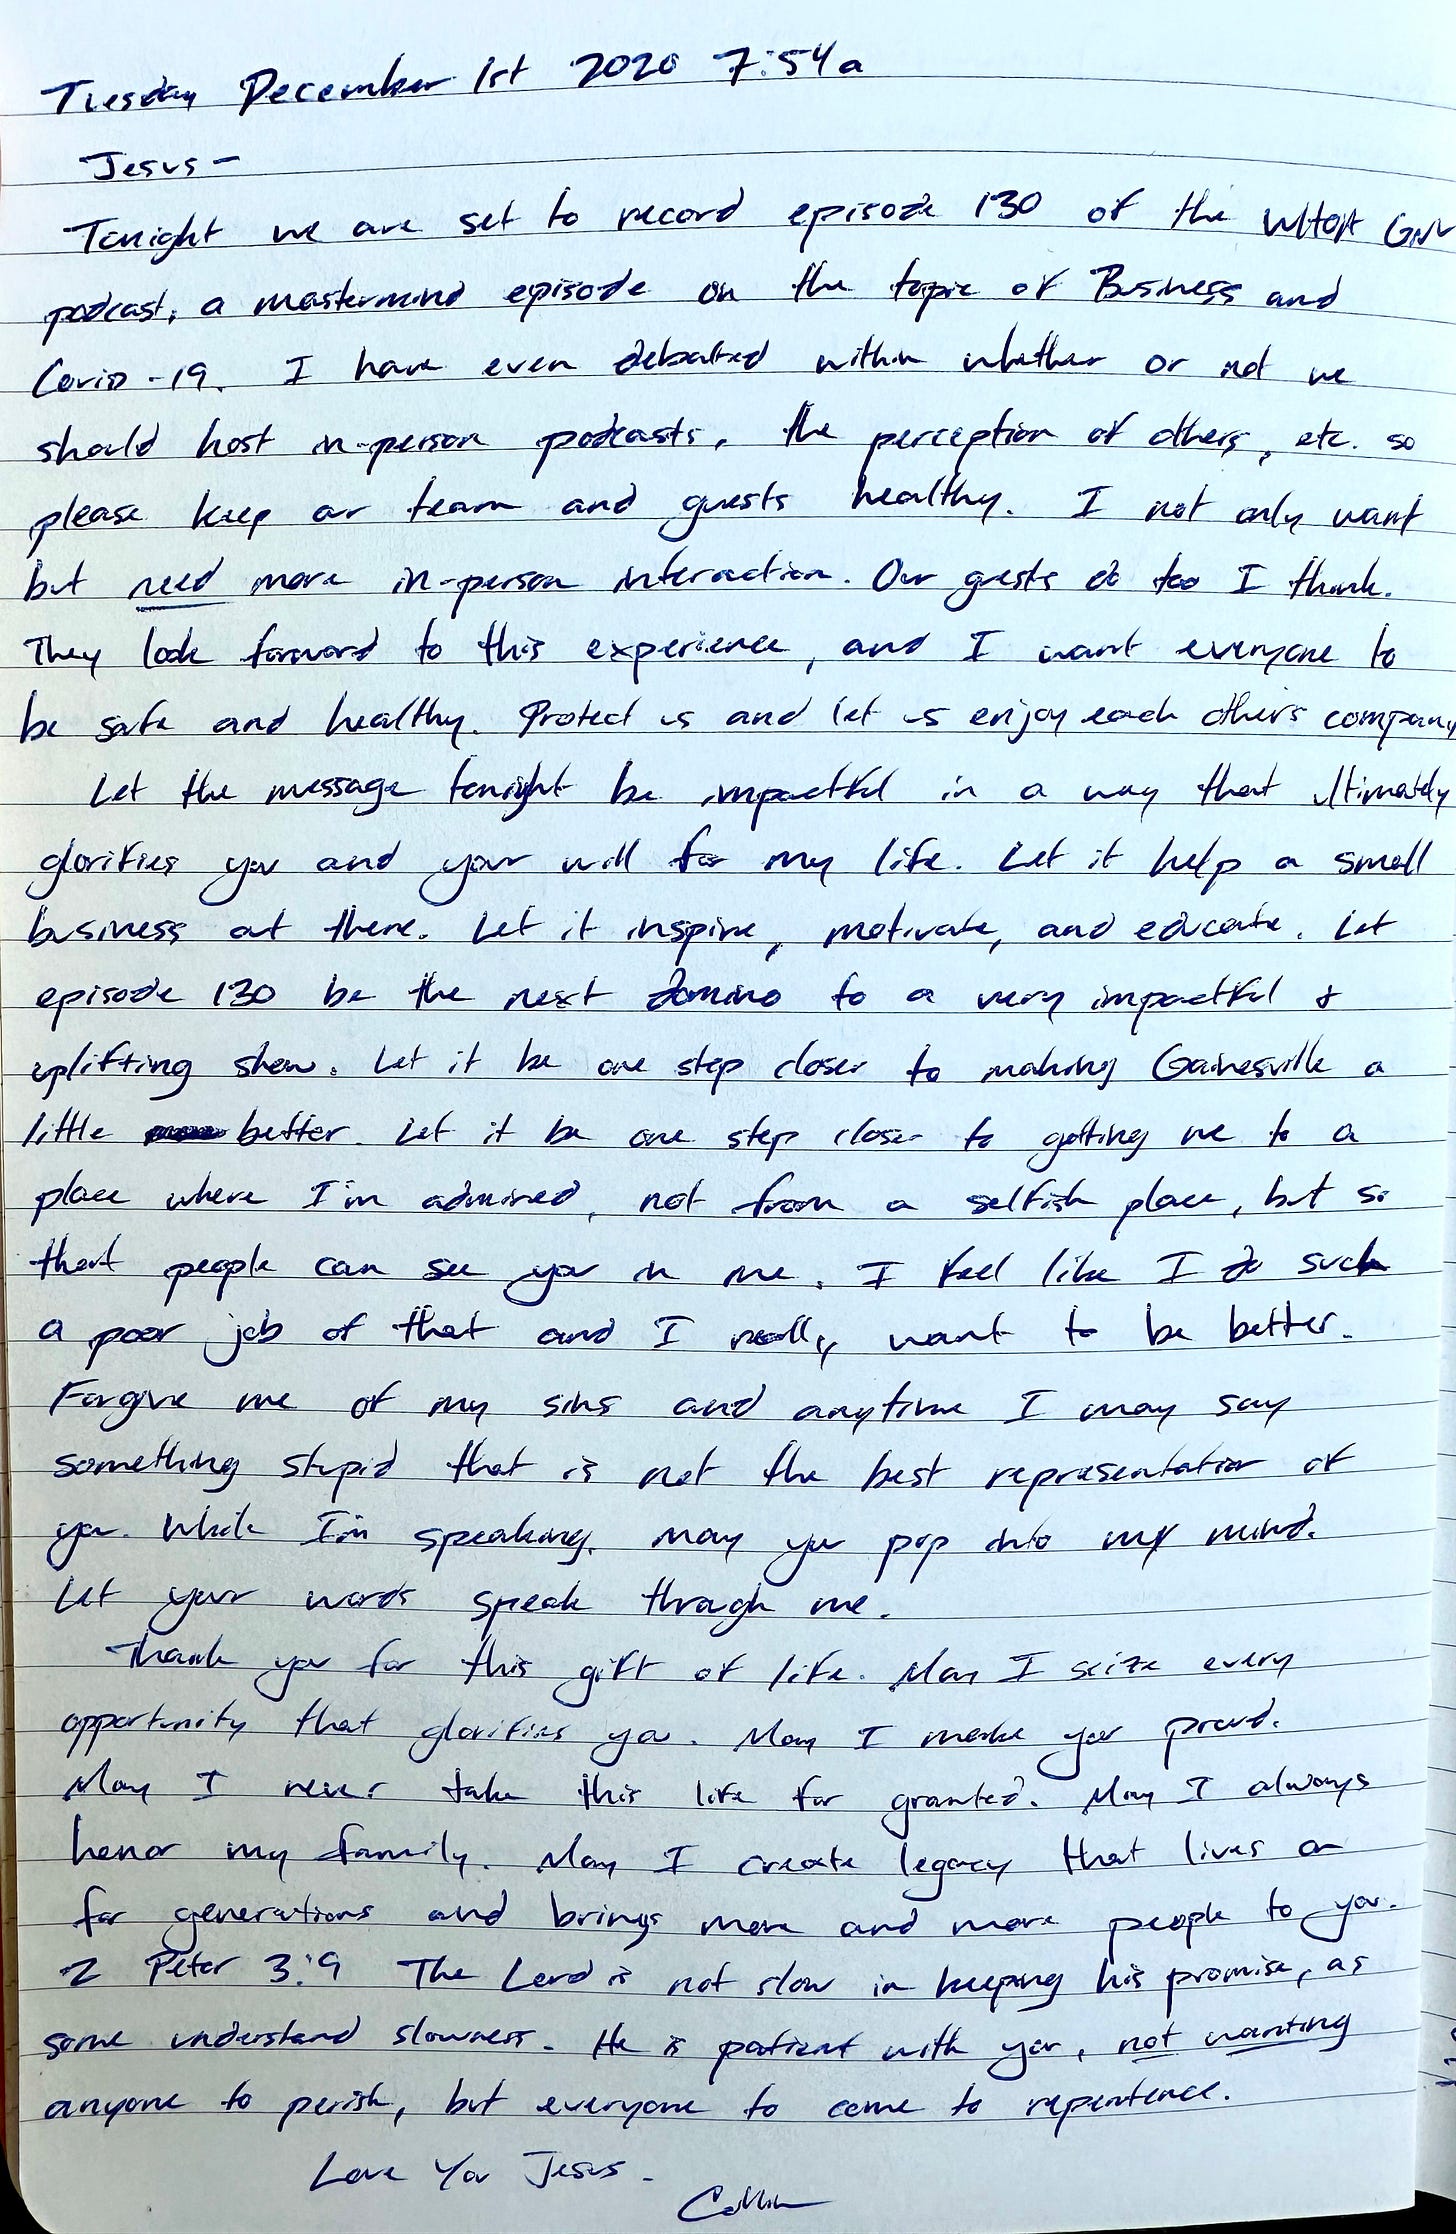 Tuesday December 1st 2020 7:54a
Jesus-
Tonight we are set to record episode 130 of the WHOA GNV
podcast, a mastermind episode on the topic of Business and
Covid-19. I have even debated within whether or not we
should host in-person podcasts, the perception of others, etc. so
please keep our team and guests healthy. I not only want
but need more in-person interaction. Our guests do too I think.
They look forward to this experience, and I want everyone to
be safe and healthy. Protect us and let us enjoy each others company
Let the message tonight be impactful in a way that ultimately
glorifies you and your will for my life. Let it help a small
business out there. Let it inspire, motivate, and educate. Let
episode 130 be the next domino to a very impactful &
uplifting show. Let it be one step closer to making Gainesville a
little better. Let it be one step closer to getting me to a
place where I'm admired, not from a selfish place, but so
that people can see you in me. I feel like I do such
a poor job of that and I really want to be better.
Forgive me of my sins and anytime I may say
something stupid that is not the best representation of
you. While I'm speaking, may you pop into my mind.
Let your words speak through me.
Thank you for this gift of life. May I seize every
opportunity that glorifies you. May I make you proud.
May I never take this life for granted. May I always
honor my family. May I create legacy that lives on
for generations and brings more and more people to you.
2 Peter 3:9 The Lord is not slow in keeping his promise, as
some understand slowness. He is patient with you, not wanting
anyone to perish, but everyone to come to repentence.
Love You Jesus.
Collin